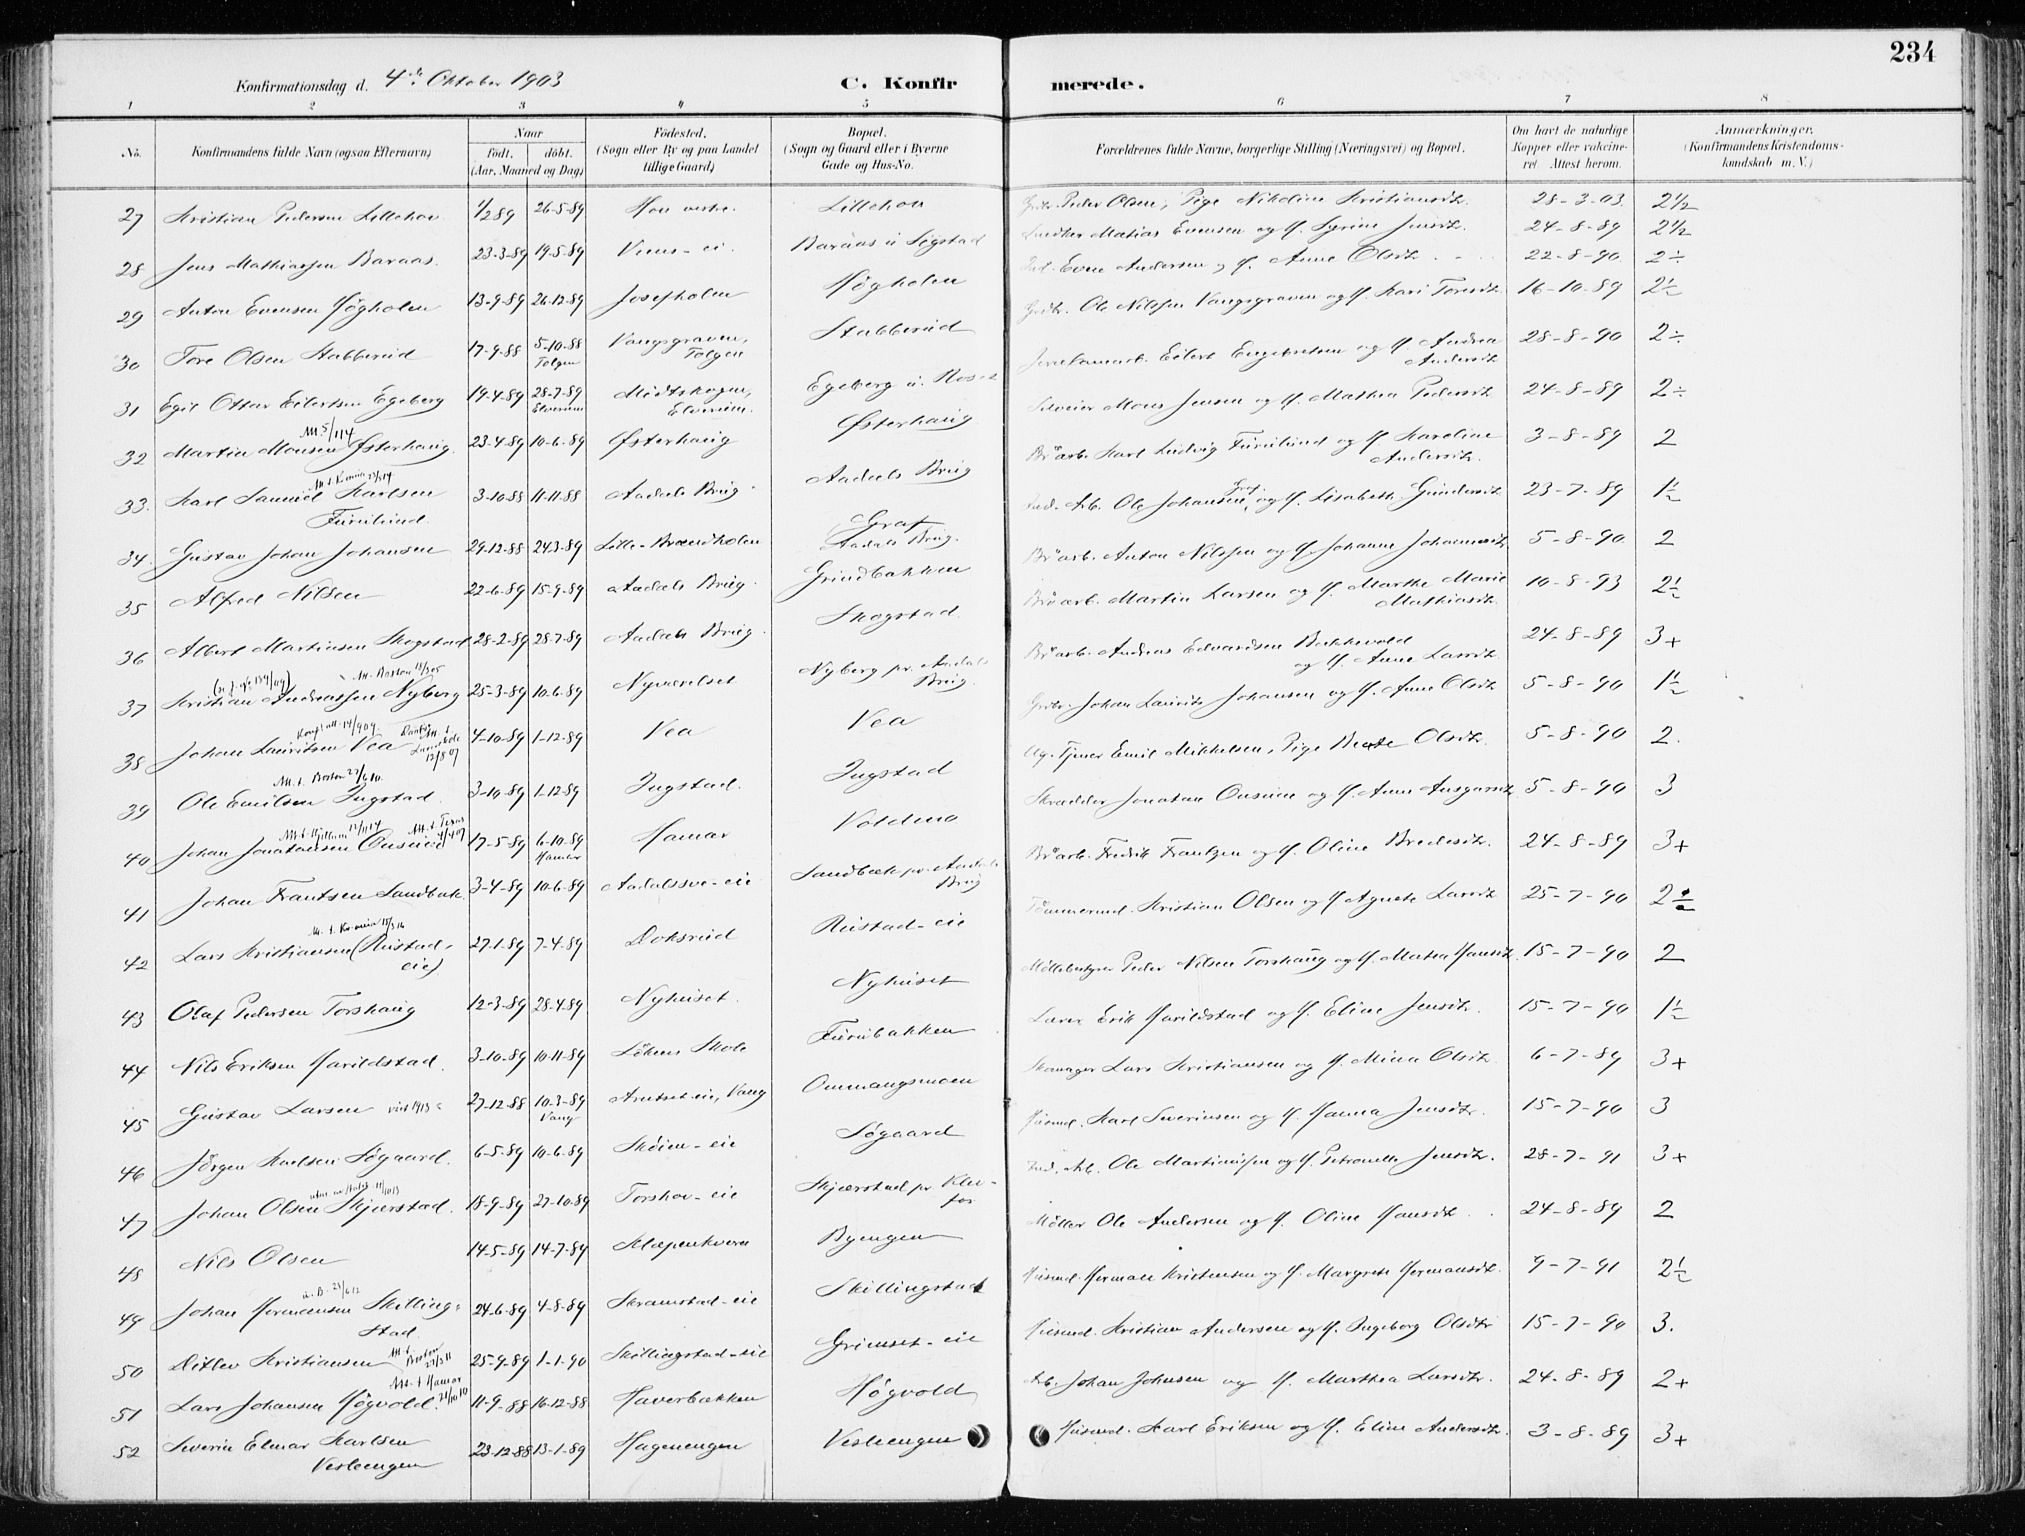 234
Konfirmationsdag d. 4de Oktober 1903
C. Konfirmerede.
1 2 3 4 5 6 7 8
No. Konfirmandens fulde Navn (ogsaa Efternavn) Naar født. døbt. (Aar, Maaned og Dag) Fødested. (Sogn eller By og paa Landet tillige Gaard) Bopæl. (Sogn og Gaard eller i Byerne Gade og Hus-No. Forældrenes fulde Navne, borgerlige Stilling (Næringsvei) og Bopæl. Om havt de naturlige Kopper eller vakcineret Attest herom. Anmærkninger. (Konfirmandens Kristendomskundskab m. V.)
27 Kristian Pedersen Lillehov 1/2 89 26-5-89 Hov vestre. Lillehov Peder Olsen, Pige Nikoline Kristiansdtr. 28-3-03 2 1/2
28 Jens Mathiassen Baraas. 23-3-89 19-5-89 Baraas u. Sigstad Matias Evensen og H. Syrine Jensdtr. 24-8-89 2 1/2
29 Anton Evensen Høgholen 13-9-89 26-12-89 Josefholen Høgholen Ind. Even Andersen og H. Anne Olsdtr. 22-8-90 2÷
30 Tore Olsen Stabberud 17-9-88 5-10-88 Tolgen Vangsgraven, Tolgen Stubberud Ole Nilssen Vangsgraven og H. Kari Toresdtr. 16-10-89 2 1/2
31 Egil Ottar Eilertsen Egeberg 19-4-89 28-7-89 Elverum Midtskogen, Elverum. Egeberg u. Eilert Engebretsen og H. Andrea Andersdtr. 28-8-90 2÷
32 Martin Monsen Østerhaug. 23-4-89 10-6-89 Østerhaug Østerhaug Selveier Mons Jensen og H. Mathea Pedersdtr. 24-8-89 2÷
33. Karl Samuel Karlsen Furulund. 3-10-88 11-11-88 Aadals Brug Aadals Brug Brugarb. Karl Ludvig Furulund og H. Karoline Andersdtr. 3-8-89 2
34. Gustav Johan Johansen 29-12-88 24-3-89 Lille-Brændholen Graf Aadals Brug. Ind. Arb. Ole Johansen Graf. og H. Lisabeth Gundersdtr. 23-7-89 1 1/2
35 Alfred Nilsen 22-6-89 15-9-89 Aadals Brug. Grindbakken Brugarb. Anton Nilssen og H. Johanne Johannesdtr. 5-8-90 2
36 Albert Martinsen Skogstad 28-2-89 28-7-89 Aadals Brug. Skogstad. Brugarb. Martin Larsen og H. Marthe Marie Mathiasdtr. 10-8-93 2 1/2
37 Kristian Andreassen Nyberg 25-3-89 10-6-89 Nyværelset Nyberg pr. Aadals Brug. Brugarb. Andreas Edvardsen Bakkevold og H. Anne Larsdtr. 24-8-89 3+
38 Johan Lauritsen Vea 4-10-89 1-12-89 Vea Vea Johan Laurits Johansen og H. Anne Olsdtr. 5-8-90 1 1/2
39 Att. t. Boston 27/6 10. Ole Emilsen Ingstad. 3-10-89 1-12-89 Ingstad. Ingstad Tjener Emil Mikkelsen, Pige Beate Olsdtr. 5-8-90 2.
40 Johan Jonatansen 17-5-89 6-10-89 Hamar Hamar Voldmo Skrædder Jonatan og H. Anne Ansgarsdtr. 5-8-90 3
41 Johan Frantsen Sandbæk. 3-4-89 10-6-89 Aadalssve-eie Sandbæk pr. Aadals Brug Brugarb. Fredrik Frantzen og H. Oline Bredesdtr. 24-8-89 3+
42 Lars Kristiansen (Rustad-eie) 27-1-89 7-4-89 Doksrud Rustad-eie Tømmermd. Kristian Olsen og H. Agnete Larsdtr. 25-7-90 2 1/2
43 Olaf Pedersen Torshaug 12-3-89 28-4-89 Nyhuset. Nyhuset Møllebestyrer Peder Nilsen Torshaug og H. Matea Hansdtr. 15-7-90 2
44 Nils Eriksen Harildstad. 3-10-89 10-11-89 Løkens Skole Furubakken Lærer Erik Harildstad og H. Eline Jensdtr. 15-7-90 1 1/2
45 Gustav Larsen 27-12-88 10-3-89 Vang Arnset-eie, Vang Ommangsmoen Skomager Lars Kristiansen og H. Mina Olsdtr. 6-7-89 3+
46 Jørgen Karlsen Søgaard. 6-5-89 10-6-89 Skøien-eie Søgaard Husmd. Karl Severinsen og H. Hanna Jensdtr. 15-7-90 3
47 Johan Olsen Skjærstad. 18-9-89 27-10-89 Torshov-eie Skjærstad pr. Ind. Arb. Ole Martinussen og H. Petronelle Jensdtr. 28-7-91 3+
48 Nils Olsen 14-5-89 14-7-89 Klæpenkvern Byengen Møller Ole Andersen og H. Oline Hansdtr. 24-8-89 2
49 Johan Hermansen Skillingstad. 24-6-89 4-8-89 Skramstad-eie Skillingstad Husmd. Herman Kristensen og H. Margrete Hermansdtr. 9-7-91 2 1/2
50 Ditlev Kristiansen Att. t. Boston 27/3 11 25-9-89 1-1-90 Skillingstad-eie Grimset-eie Husmd. Kristian Andersen og H. Ingeborg Olsdtr 15-7-90 3.
51 Lars Johansen Høgvold. Att. t. Hamar 21/10 10 11-9-88 16-12-88 Haverbakken Høgvold Arb. Johan Johnsen og H. Marthea Larsdtr. 24-8-89 2+
52 Severin Elmar Karlsen Vesleengen 23-12-88 13-1-89 Hagenengen Vesleengen Husmd. Karl Eriksen og H. Eline Andersdtr. 3-8-89 3+